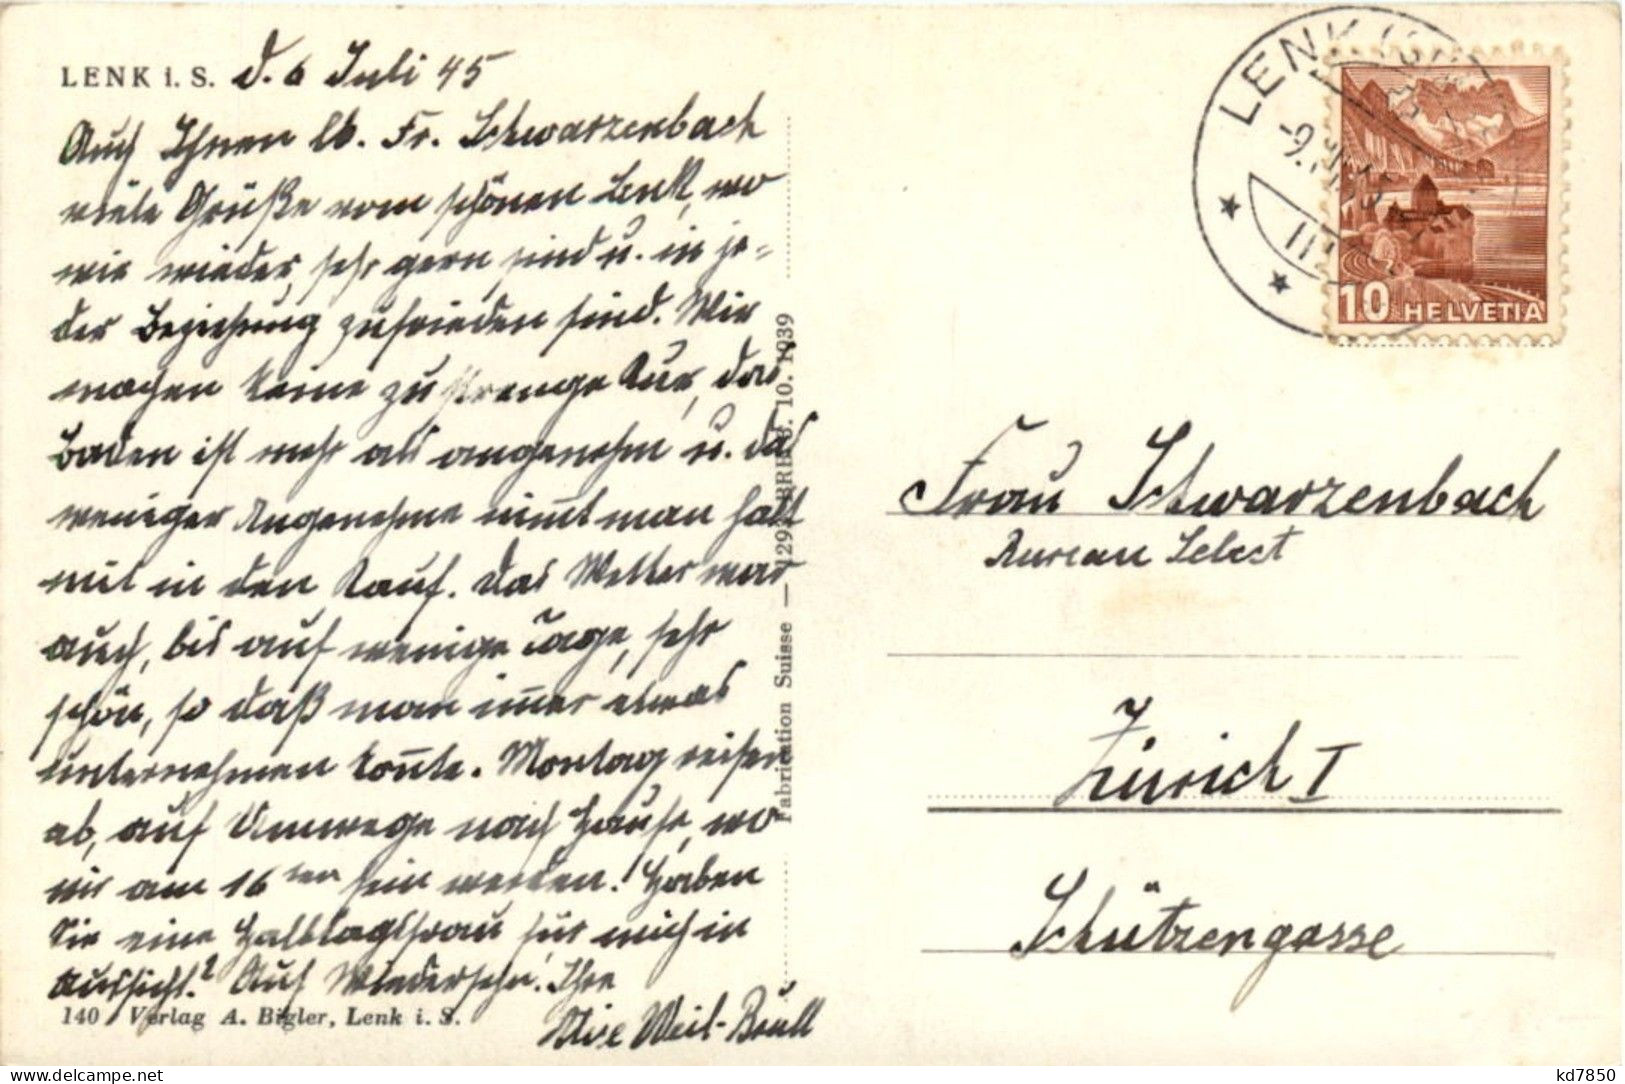 LENK i. S. d. 6 Juli 45
Auch Ihnen lb. Fr. Schwarzenbach
viele Grüße vom schönen Lenk, wo
wir wieder, sehr gern sind u. in je=
der Beziehung zufrieden sind. Wir
machen keine zu strenge Kur, das
Baden ist mehr als angenehm u. das
weniger Angenehme nim̅t man halt
mit in den Kauf. Das Wetter war
auch, bis auf wenige Tage, sehr
schön, so daß man im̅er etwas
unternehmen kon̅te. Montag reisen
ab, auf Umwege nach Hause, wo
wir am 16ten sein werden. Haben
Sie eine Halbtagsfrau für mich in
Aussicht? Auf Wiedersehn. Ihre
Weil-Brüll
140 Verlag A. Bigler, Lenk i. S.
Fabrication Suisse — BRB 3. 10. 1939
LENK
10 HELVETIA
Frau Schwarzenbach
Bureau Select
Zürich I
Schützengasse
kd7850